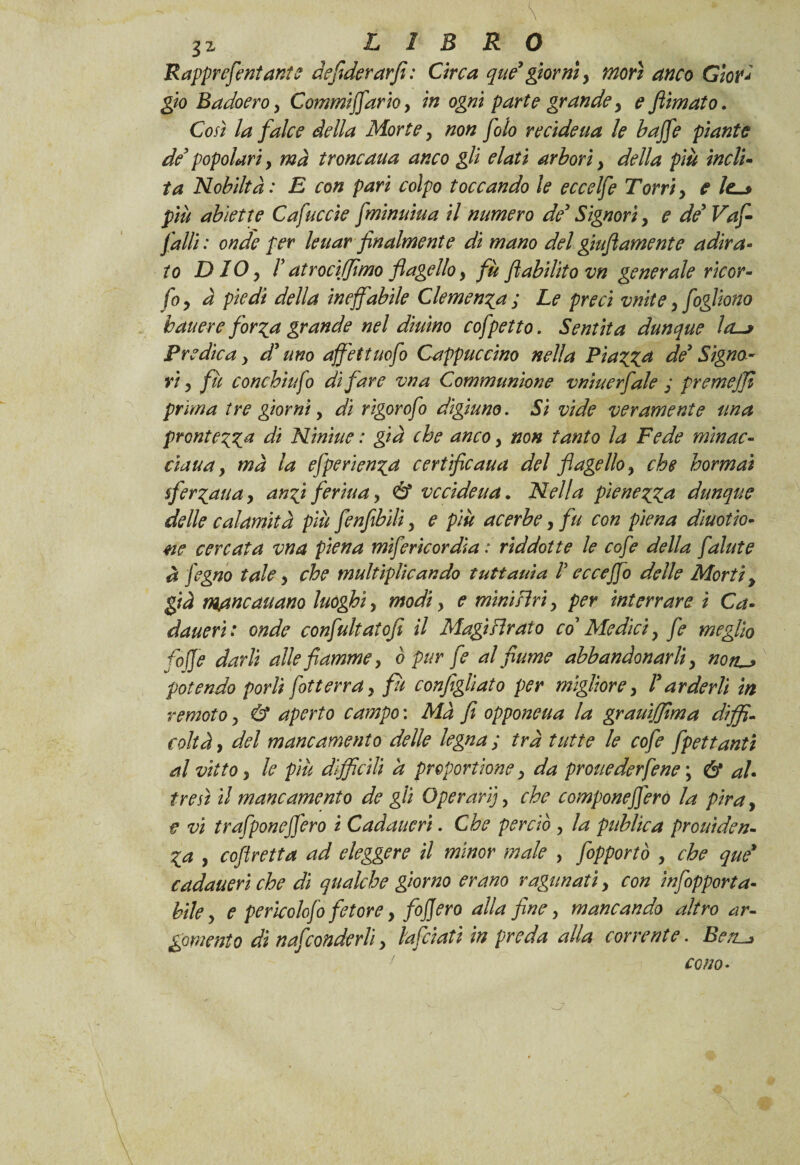 32 LIBRO
Rappreſentante deſiderarſi: Circa que' giorni, morì anco Gior-
gio Badoero, Commiſſario, in ogni parte grande, e ſtimato.
Così la falce della Morte, non ſolo recideua le baſſe piante
de' popolari, mà troncaua anco gli elati arbori, della più incli-
ta Nobiltà: E con pari colpo toccando le eccelſe Torri, e le
più abiette Caſuccie ſminuiua il numero de' Signori, e de' Vaſ-
ſalli: onde per leuar finalmente di mano del giuſtamente adira-
to DIO, l'atrociſſimo flagello, fù ſtabilito vn generale ricor-
ſo, à piedi della ineffabile Clemenza; Le preci vnite, ſogliono
hauere forza grande nel diuino coſpetto. Sentita dunque la
Predica, d'uno affettuoſo Cappuccino nella Piazza de' Signo-
ri, fù conchiuſo di fare vna Communione vniuerſale; premeſſi
prima tre giorni, di rigoroſo digiuno. Si vide veramente una
prontezza di Niniue: già che anco, non tanto la Fede minac-
ciaua, mà la eſperienza certificaua del flagello, che hormai
sferzaua, anzi feriua, & vccideua. Nella pienezza dunque
delle calamità più ſenſibili, e più acerbe, fu con piena diuotio-
ne cercata vna piena miſericordia: riddotte le coſe della ſalute
à ſegno tale, che multiplicando tuttauia l'ecceſſo delle Morti,
già mancauano luoghi, modi, e miniſtri, per interrare i Ca-
daueri: onde conſultatoſi il Magiſtrato co' Medici, ſe meglio
foſſe darli alle fiamme, ò pur ſe al fiume abbandonarli, non
potendo porli ſotterra, fù conſigliato per migliore, l'arderli in
remoto, & aperto campo: Mà ſi opponeua la grauiſſima diffi-
coltà, del mancamento delle legna; trà tutte le coſe ſpettanti
al vitto, le più difficili à proportione, da prouederſene; & al-
tresì il mancamento de gli Operarij, che componeſſero la pira,
e vi traſponeſſero i Cadaueri. Che perciò, la publica prouiden-
za, coſtretta ad eleggere il minor male, ſopportò, che que'
cadaueri che di qualche giorno erano ragunati, con inſopporta-
bile, e pericoloſo fetore, foſſero alla fine, mancando altro ar-
gomento di naſconderli, laſciati in preda alla corrente. Ben
cono-